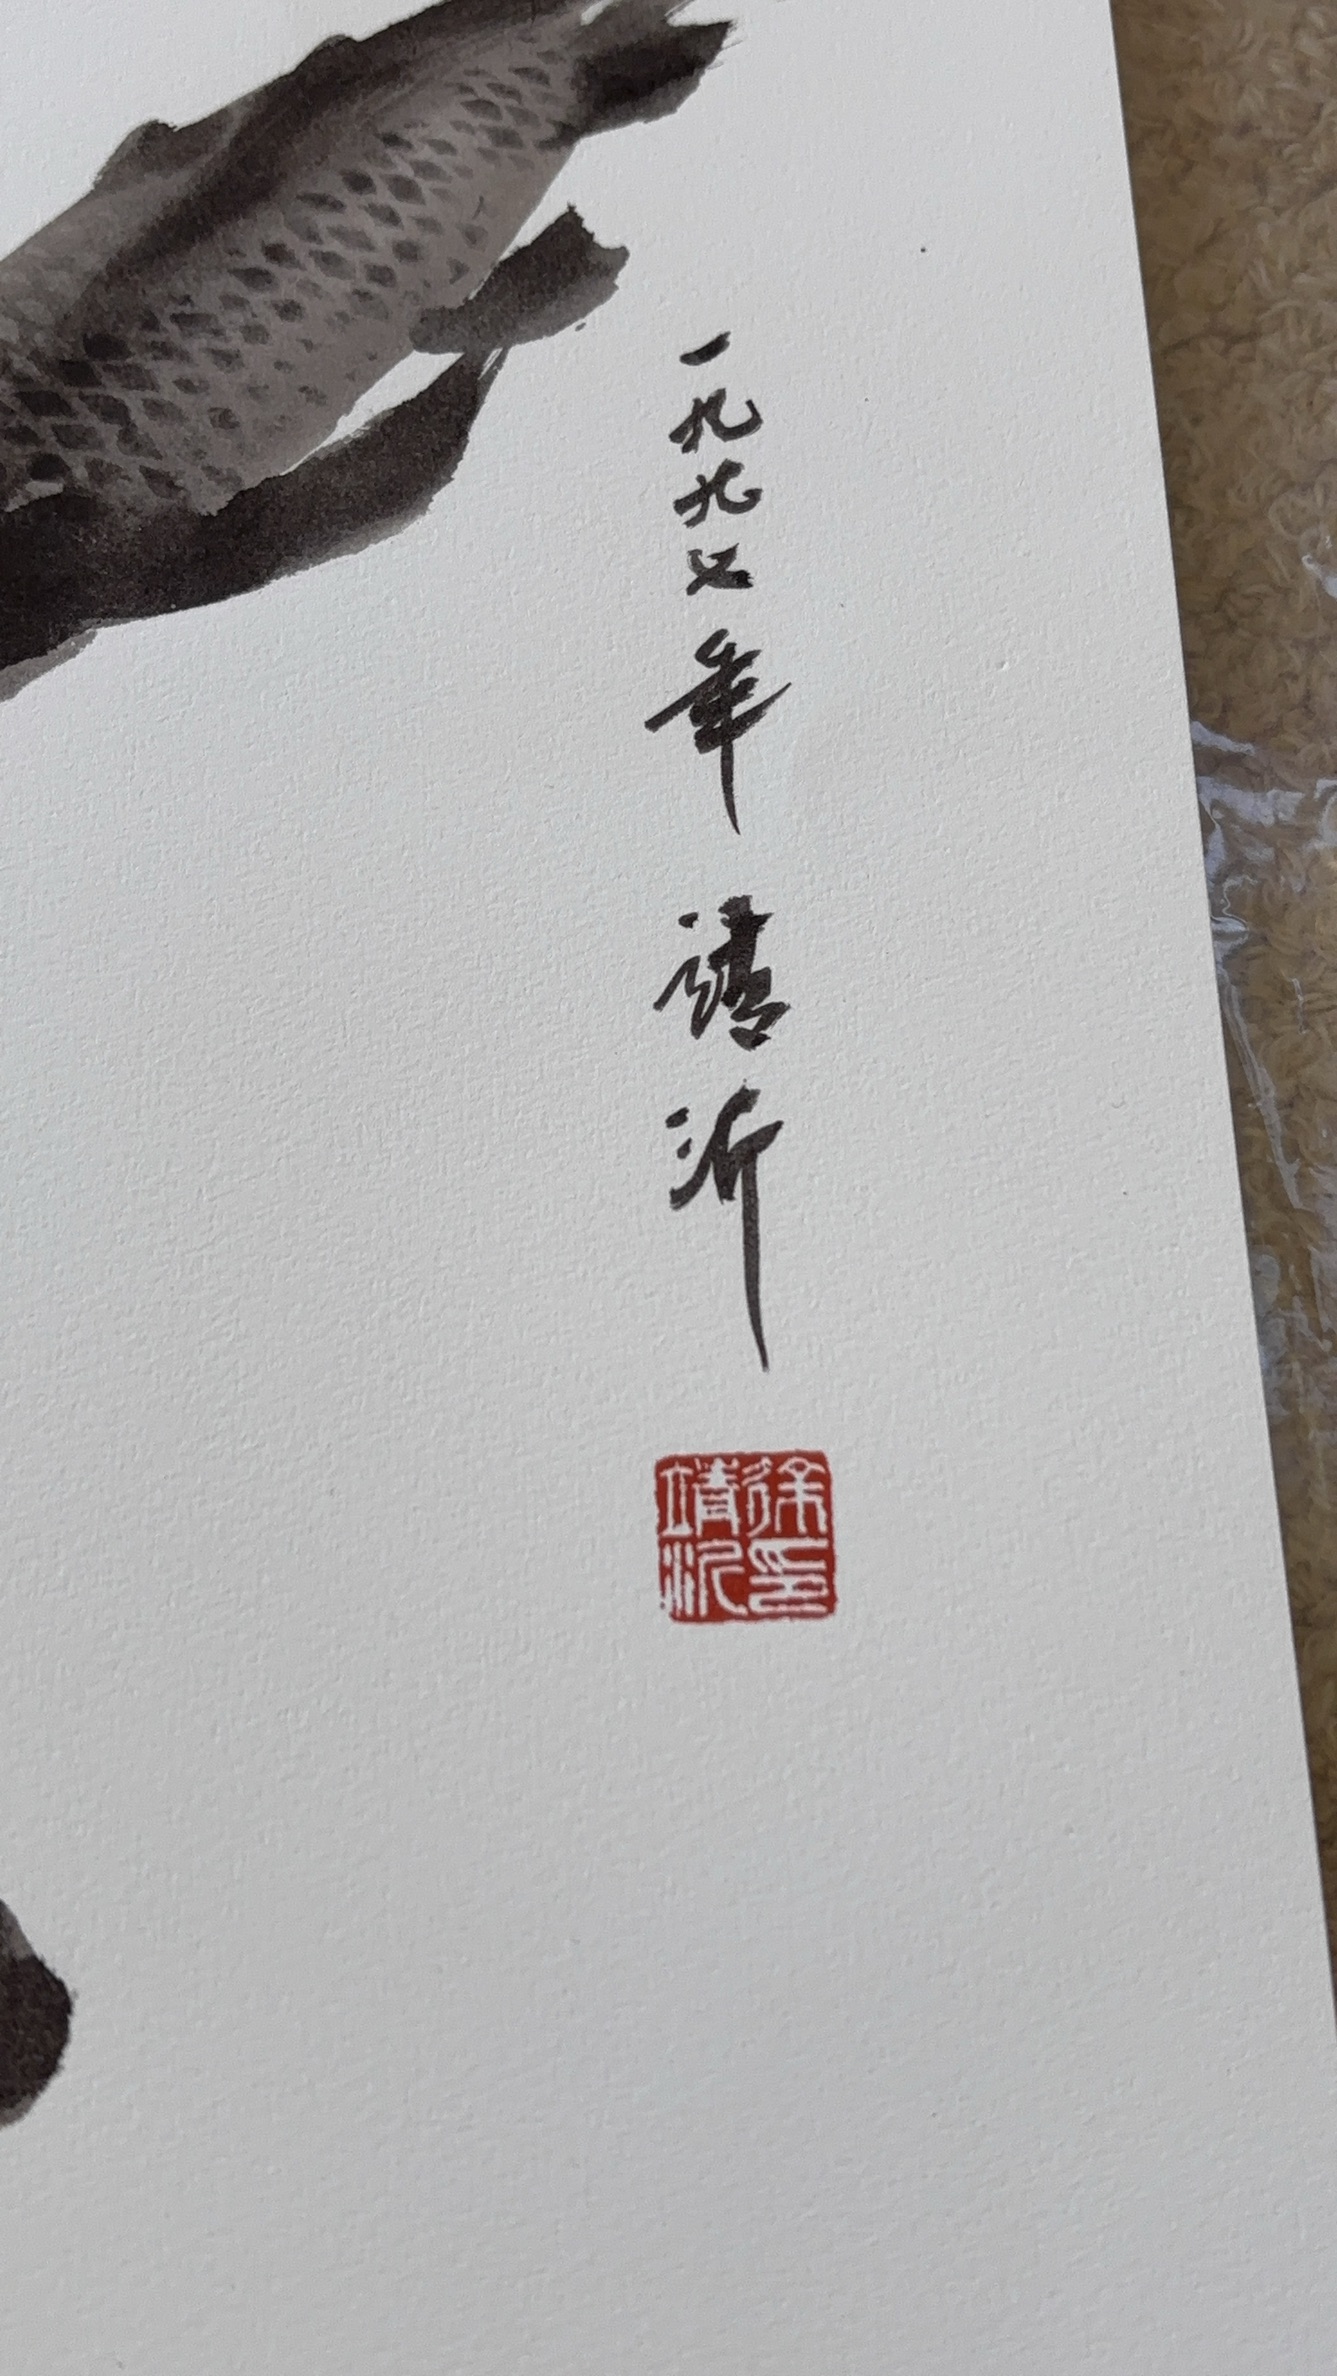 一九九七年 靖沂
徐印
靖沂